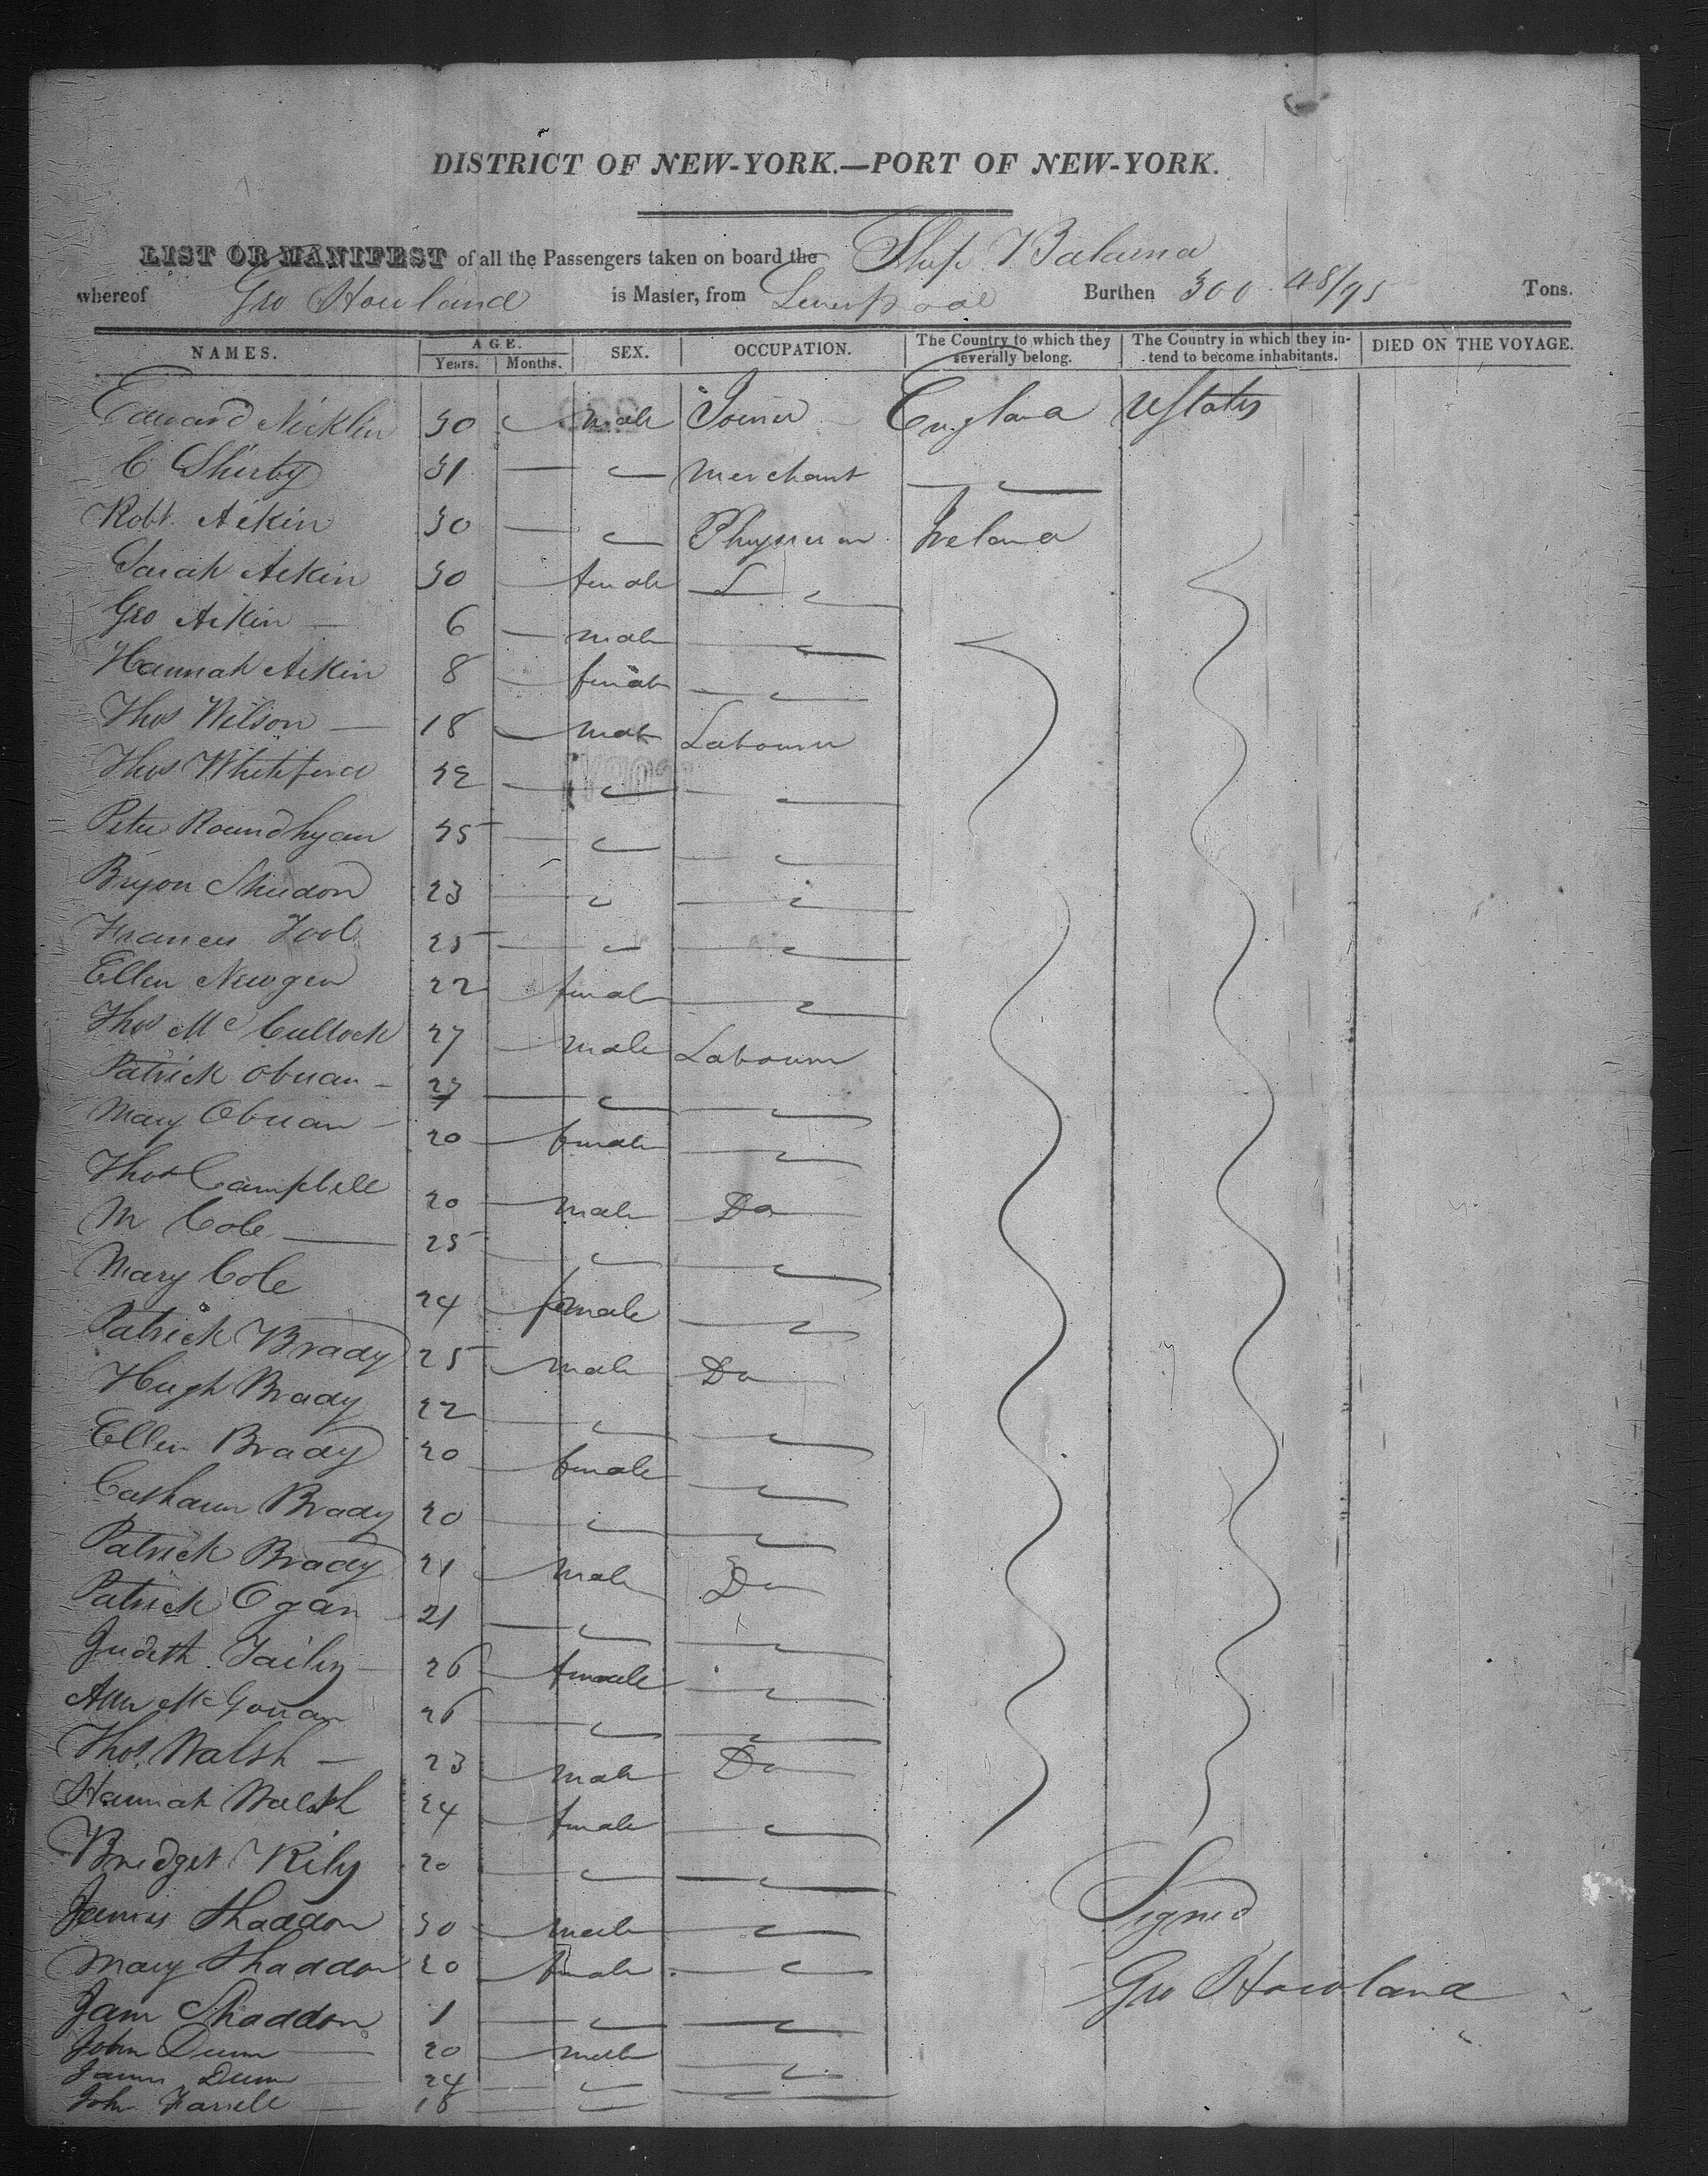 DISTRICT OF NEW-YORK.—PORT OF NEW-YORK.
LIST OR MANIFEST of all the Passengers taken on board the Ship Balaena
whereof Geo Howland is Master, from Liverpool Burthen 300 48/95 Tons.
NAMES. AGE. Years. Months. SEX. OCCUPATION. The Country to which they severally belong. The Country in which they intend to become inhabitants. DIED ON THE VOYAGE.
Edward Nicklin 30 male Joiner England UStates
C Shirby 31 Merchant
Robt. Aikin 30 Physician Ireland
Sarah Aikin 30 female
Geo Aikin 6 male
Hannah Aikin 8 female
Thos Wilson 18 male Labourer
Thos Whiteford 32
Peter 35
Bryon 23
Frances Tool 25
Ellen Newgen 22 female
Thos McCullock 27 male Labourer
Patrick Obrian 27
Mary Obrian 20 female
Thos Campbell 20 male Do
M Cole 25
Mary Cole 24 female
Patrick Brady 25 male Do
Hugh Brady 22
Ellen Brady 20 female
Brady 20
Patrick Brady 21 male Do
Patrick Ogan 21
Judith 26 female
Ann McGouan 26
Thos. Walsh 23 male Do
Hannah Walsh 24 female
Bridget Rily 20
James Shaddon 30 male
Mary Shaddon 20 female
Jane Shaddon 1
John Dunn 20 male
James Dunn 24
John Farrell 18
Signed
Geo Howland